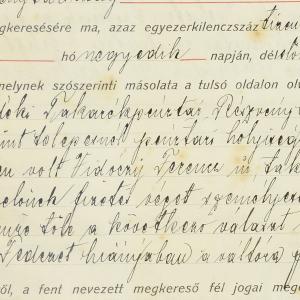 gkeresésére ma, azaz egyezerkilenczszáz tizen
hó negyedik napján, dél
melynek szószerinti másolata a tulsó oldalon olv
Takarékpénztár Részvény
telepének pénztári helyiség
volt Vidoczy Ferenc úr, tak
fizetés végett személyes
tőle a következő választ
Fedezet hiányában a váltóra
ről, a fent nevezett megkereső fél jogai meg